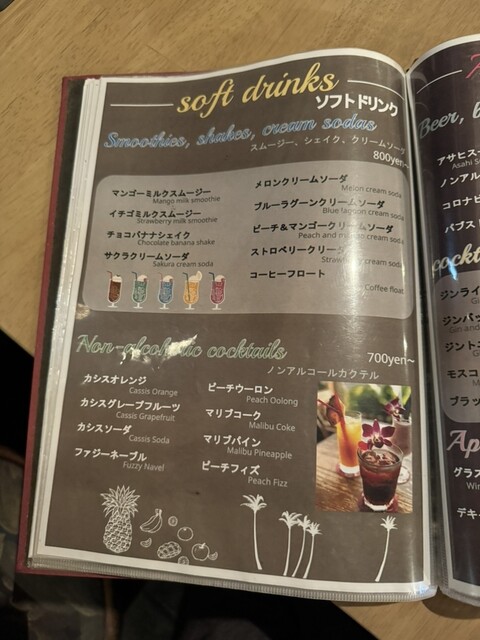 soft drinks
ソフトドリンク
Smoothies, shakes, cream sodas
スムージー、シェイク、クリームソーダ
800yen~
マンゴーミルクスムージー
Mango milk smoothie
イチゴミルクスムージー
Strawberry milk smoothie
チョコバナナシェイク
Chocolate banana shake
サクラクリームソーダ
Sakura cream soda
メロンクリームソーダ
Melon cream soda
ブルーラグーンクリームソーダ
Blue lagoon cream soda
ピーチ&マンゴークリームソーダ
Peach and mango cream soda
ストロベリークリーム
cream soda
コーヒーフロート
Coffee float
Non-alcoholic cocktails
700yen~
ノンアルコールカクテル
カシスオレンジ
Cassis Orange
カシスグレープフルーツ
Cassis Grapefruit
カシスソーダ
Cassis Soda
ファジーネーブル
Fuzzy Navel
ピーチウーロン
Peach Oolong
マリブコーク
Malibu Coke
マリブパイン
Malibu Pineapple
ピーチフィズ
Peach Fizz
Beer,
アサヒス
Asahi
ノンアル
コロナビ
パブス
ジンライ
ジンバッ
Gin and
ジント
モスコ
ブラッ
Ap
グラス
デキ